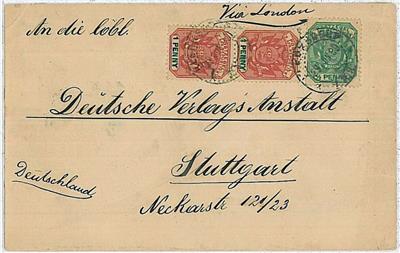 Via London
An die löbl.
1 PENNY
1 PENNY
Deutsche Verlags Anstalt
Stuttgart
Deutschland
Neckarstr 121/23